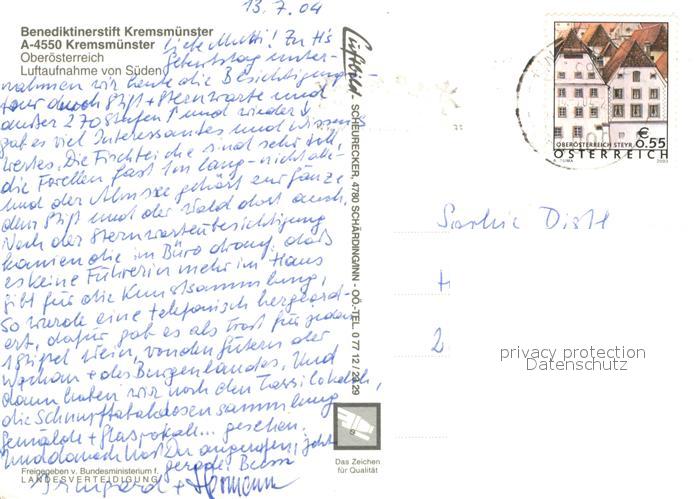 13.7.04
Benediktinerstift Kremsmünster
A-4550 Kremsmünster
Oberösterreich
Luftaufnahme von Süden
Liebe Mutti! Zu H's
Geburtstag unter-
nahmen wir heute die Besichtigungs-
tour durch Stift + Sternwarte und
außer 270 Stufen und wieder
gab es viel Interessantes und Wissens
wertes. Die Fischteiche sind sehr toll,
die Forellen fast 1m lang - nicht alle -
und der Almsee gehört zur Gänze
dem Stift und der Wald dort auch.
Nach der Sternwartebesichtigung
kamen die im Büro drauf, daß
es keine Führerin mehr im Haus
gibt für die Kunstsammlung,
so wurde eine telefonisch hergeord-
ert, dafür gab es als Trost für jeden
1 Stifel Wein, von den Gütern der
Wachau + des Burgenlandes. Und
dann haben wir noch den Tassilokelch,
die Schnupftabakdosensammlung
Gemälde + Glaspokale... gesehen.
Und danach hast Du angerufen, jetzt
gerade. Bussi
Irmgard + Hermann
Freigegeben v. Bundesministerium f.
LANDESVERTEIDIGUNG
Luftbild
SCHEURECKER, 4780 SCHÄRDING/INN - OÖ.-TEL. 0 77 12 / 29 29
Das Zeichen
für Qualität
€ 0.55
OBERÖSTERREICH STEYR
ÖSTERREICH
2003
Sophie Distl
H
2
privacy protection
Datenschutz